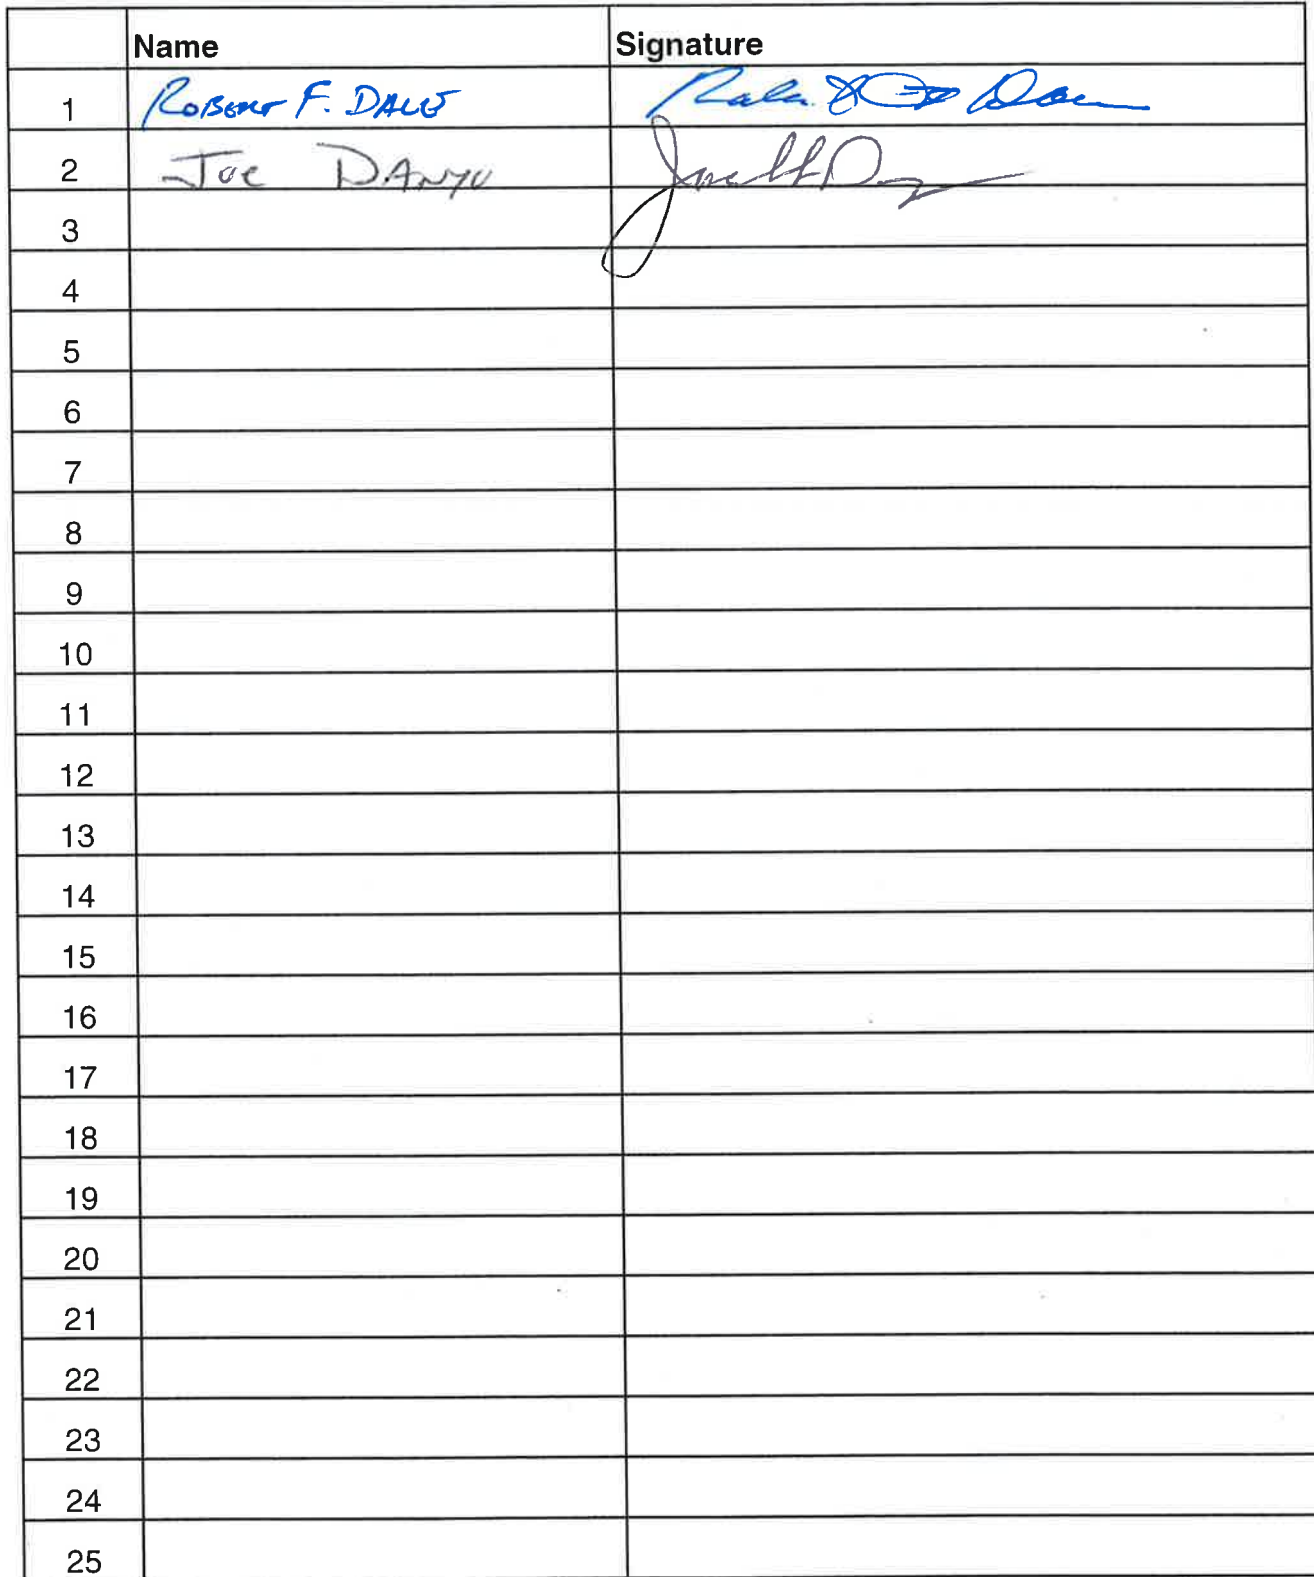 Name Signature
1 ROBERT F. DALE
2 Joe DANYO
3
4
5
6
7
8
9
10
11
12
13
14
15
16
17
18
19
20
21
22
23
24
25